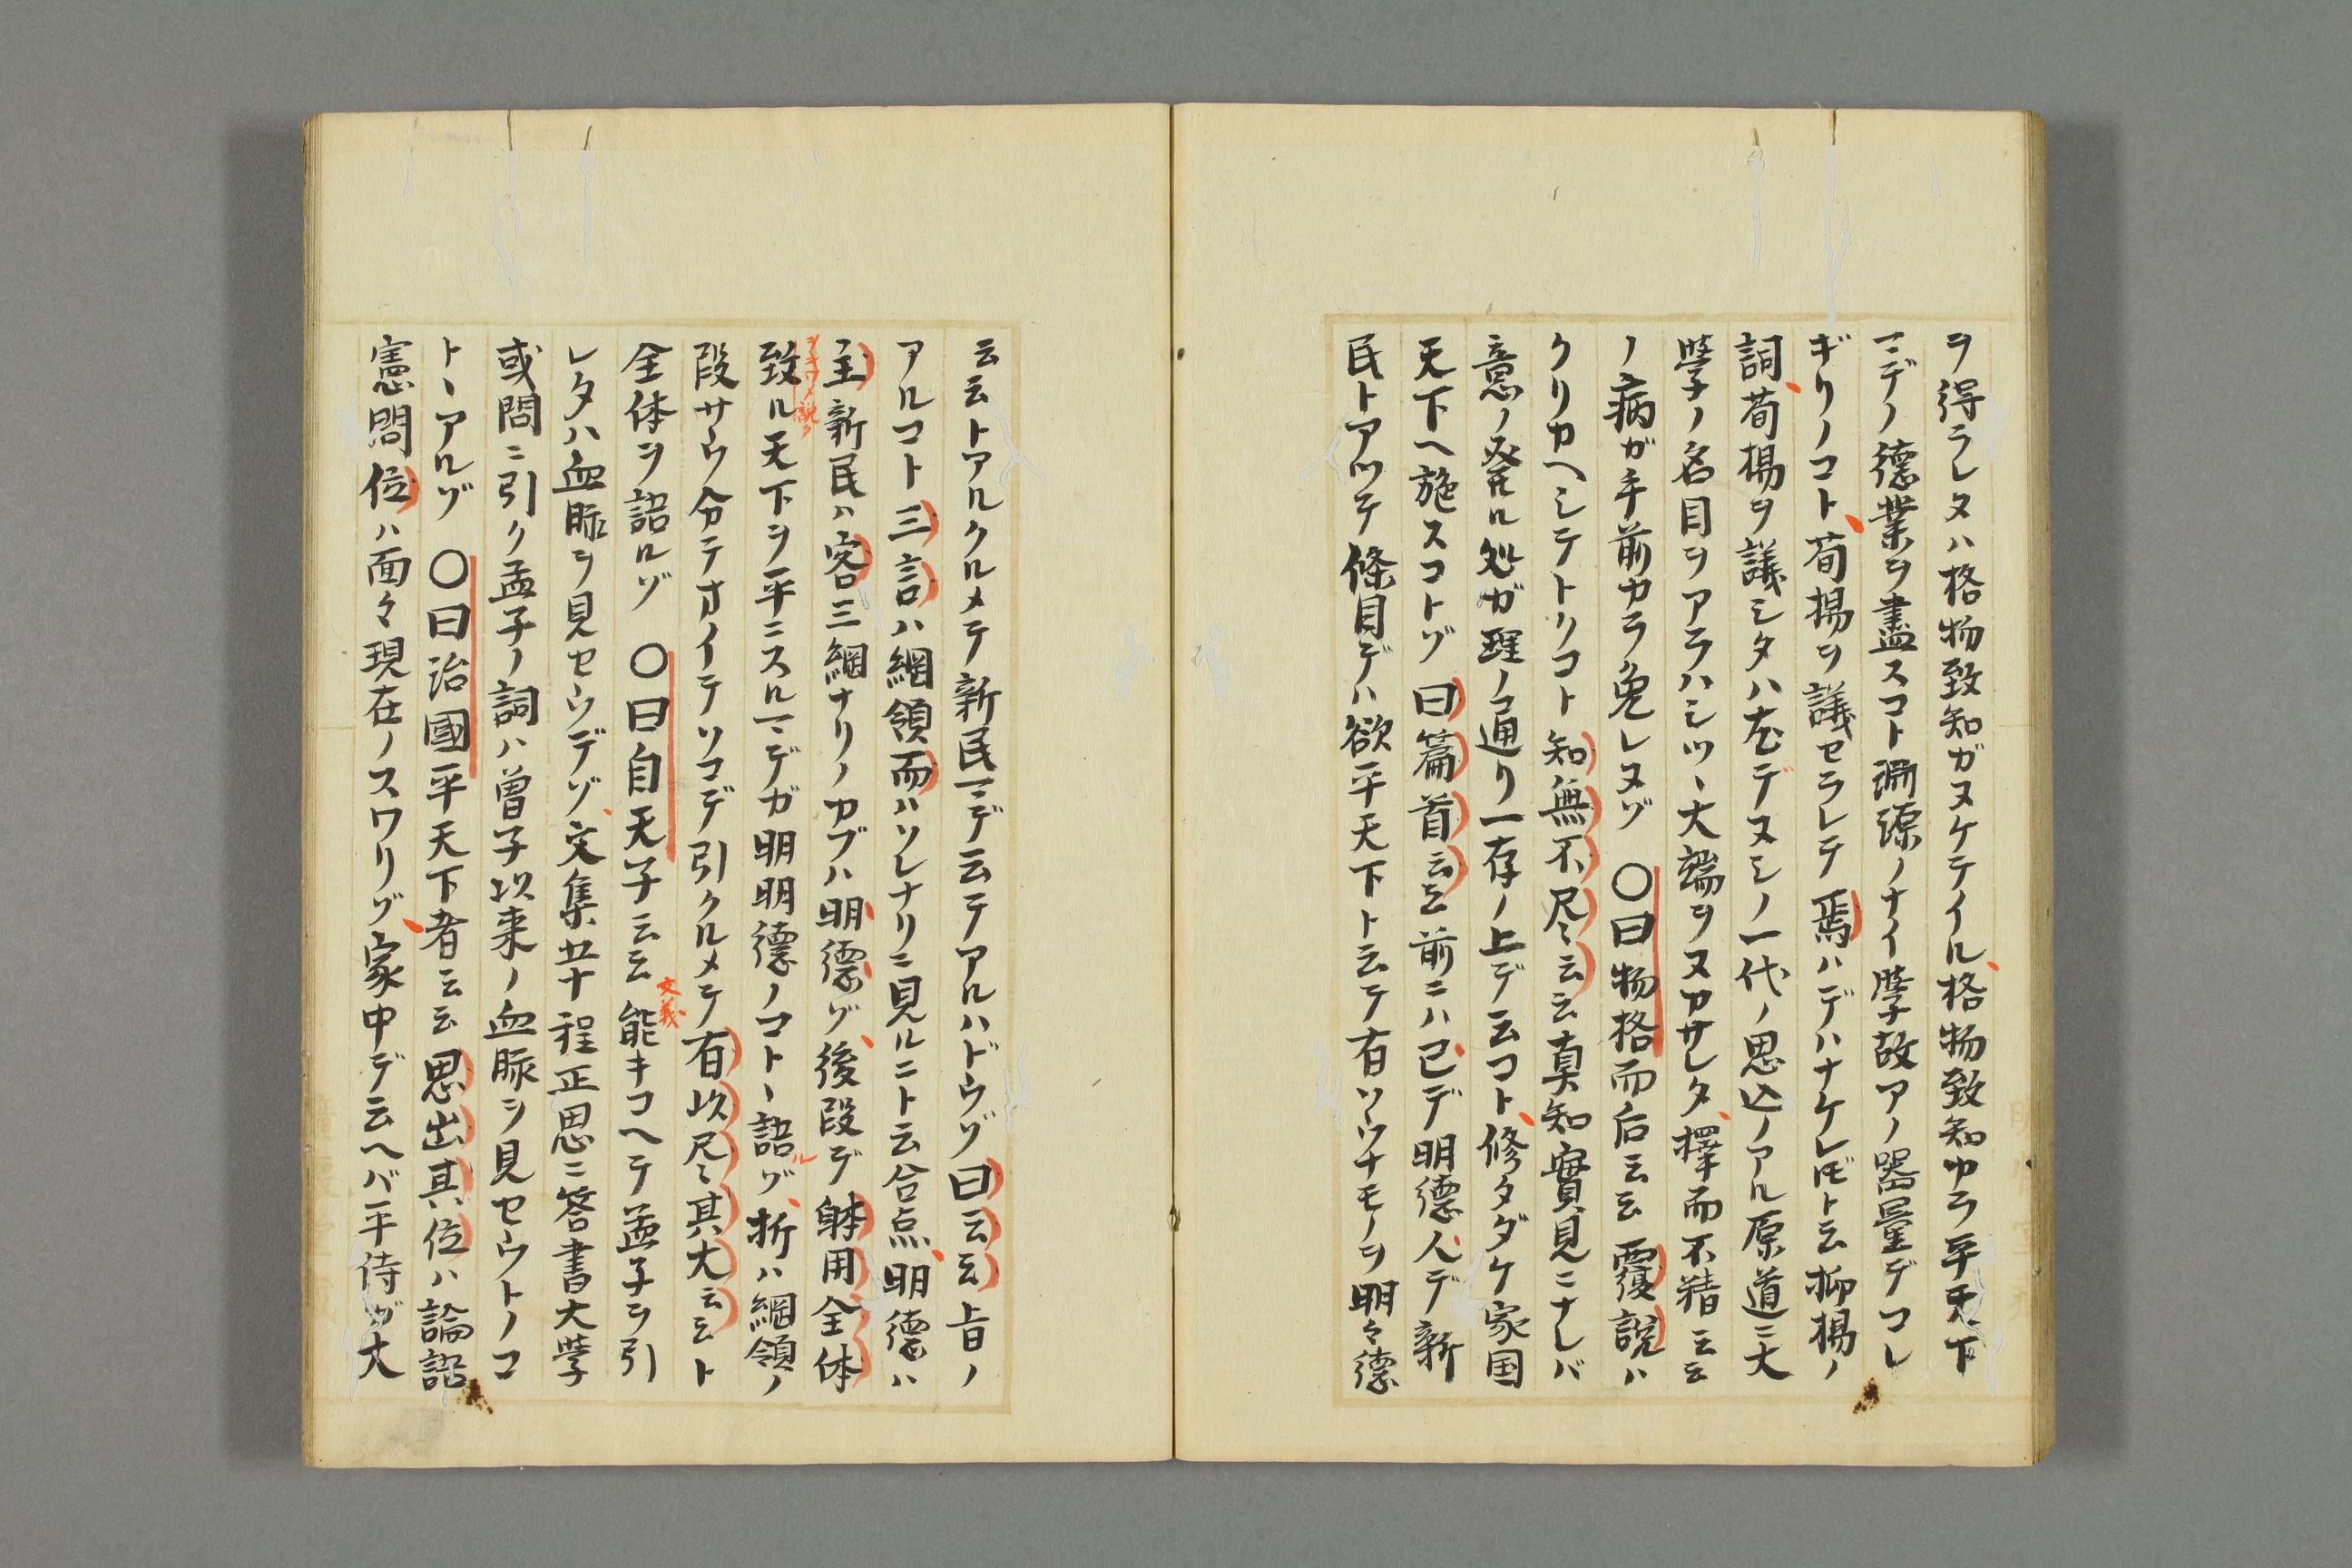 ヲ得ラレタハ格物致知ガヌケテイル格物致知カラ平天下
マデノ德業ヲ盡スコト淵源ノナイ學故アノ器量デコレ
ギリノコト荀揚ヲ議セラレテ焉ハデハナケレ𪜈ト云抑揚ノ
詞荀楊ヲ議シタハ尤デヌシノ一代ノ思込ノアル原道ニ大
學ノ名目ヲアラハシツヽ大端ヲヌカサレタ擇而不精云云
ノ病ガ手前カラ免レヌゾ 〇曰物格而后云云覆説ハ
クリカヘシテトクコト知無不尽云云真知實見ニナレバ
意ノ発ル処ガ理ノ通リ一存ノ上デ云コト修タダケ家国
天下ヘ施スコトゾ曰篇首云云前ニハ已デ明德人デ新
民トアツテ條目デハ欲平天下ト云テ有ソウナモノヲ明々德
云云トアルクルメテ新民マデ云テアルハドウゾ曰云云上旨ノ
アルコト三言ハ綱領而ハソレナリニ見ルニト云合点明德ハ
主新民ハ客三綱ナリノカブハ明德ゾ後段デ躰用全体
致ル天下ヲ平ニスルマデガ明明德ノコトヽ語ルゾ析ハ綱領ノ
段サウ分テオイテソコデ引クルメテ有以尽其大云云ト
全体ヲ語ルゾ 〇曰自天子云云文義能キコヘテ孟子ヲ引
レタハ血脈ヲ見セウデゾ文集五十程正思ニ答書大學
或問ニ引ク孟子ノ詞ハ曽子以来ノ血脈ヲ見セウトノコ
トヽアルゾ 〇曰治國平天下者云云思出其位ハ論語
憲問位ハ面々現在ノスワリゾ家中デ云ヘバ平侍ガ大